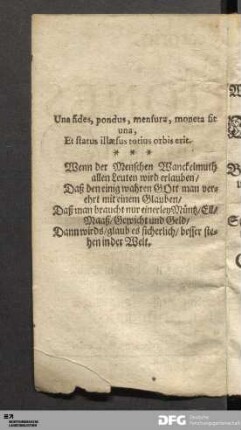 Una fides, pondus, mensura, moneta sit
una,
Et status illæsus totius orbis erit.
* * *
Wenn der Menschen Wanckelmuth
allen Leuten wird erlauben/
Daß den einig wahren GOtt man ver-
ehrt mit einem Glauben/
Daß man braucht nur einerley Müntz/ Ell/
Maaß/ Gewicht und Geld/
Dann wirds/ glaub es sicherlich/ besser ste-
hen in der Welt.
DFG Deutsche
Forschungsgemeinschaft